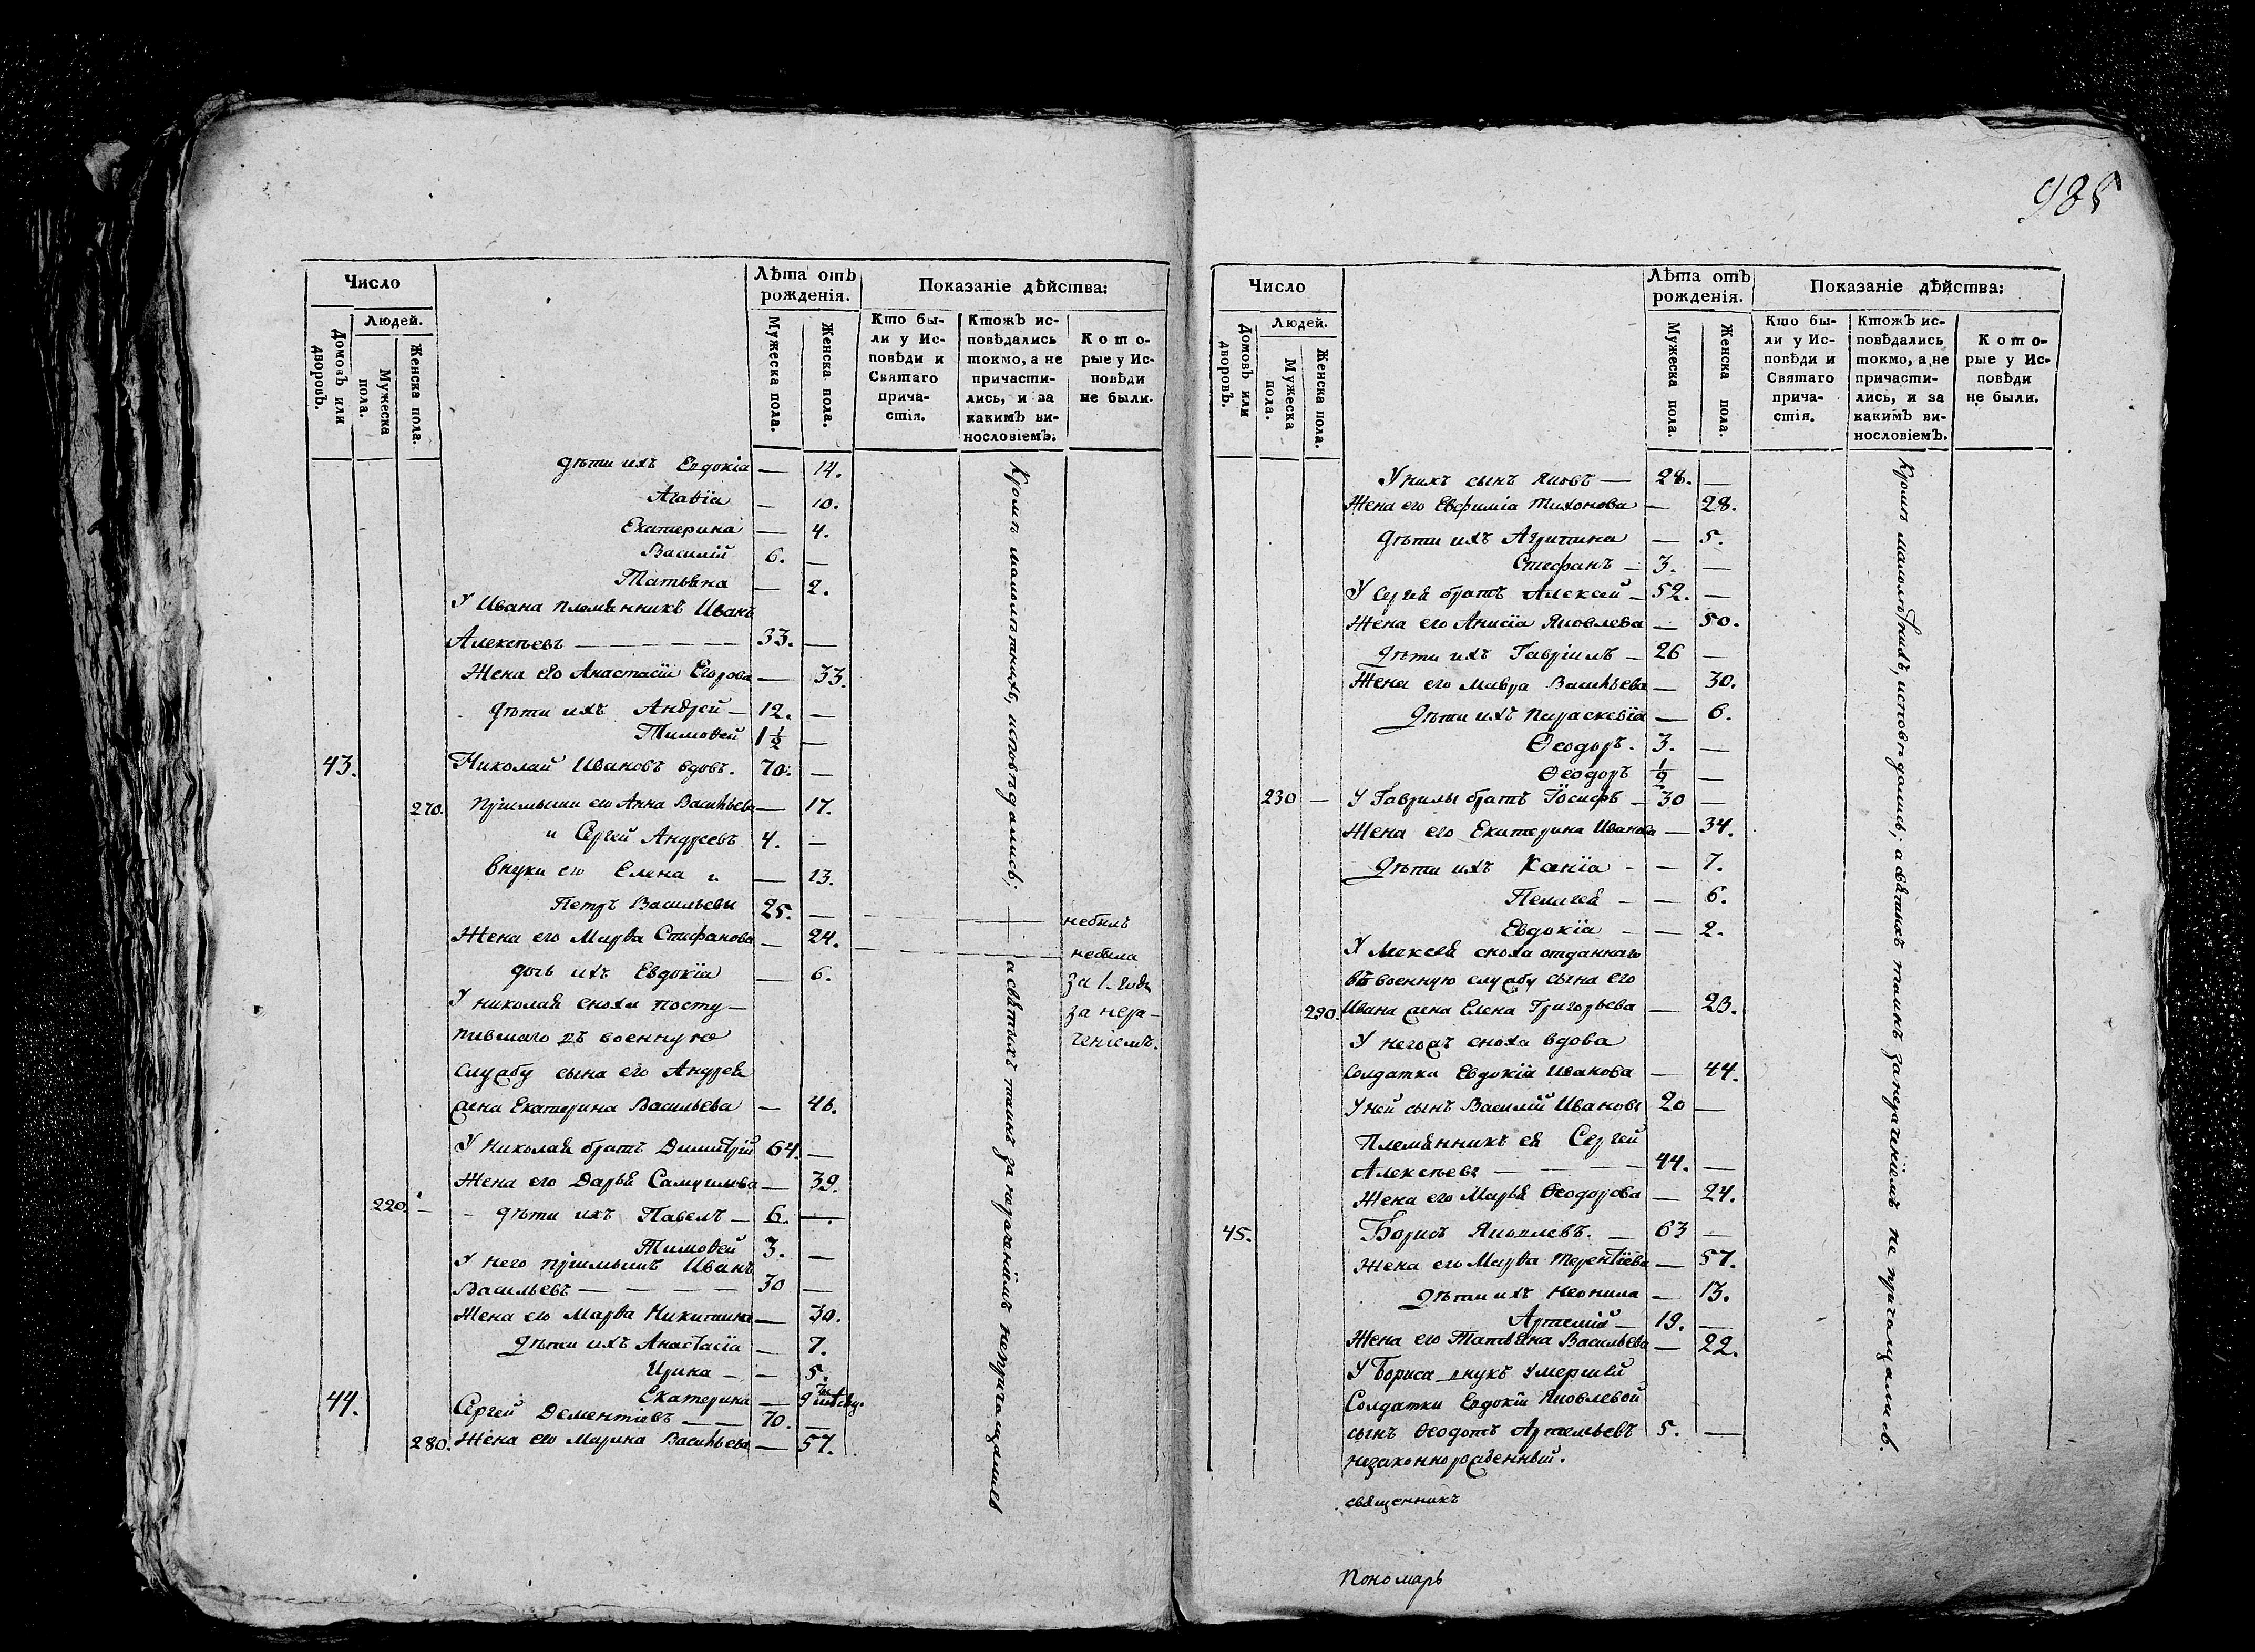 985
Число
Лѣта отъ рожденія.
Показаніе дѣйства:
Домовъ или дворовъ.
Людей.
Мужеска пола.
Женска пола.
Мужеска пола.
Женска пола.
Кто были у Исповѣди и Святаго причастія.
Ктожъ исповѣдались токмо, а не причастились, и за какимъ винословіемъ.
Которые у Исповѣди не были.
дѣти ихъ Евдокіа — 14.
Агаѳіа — 10.
Екатерина — 4.
Василій 6. —
Татьяна — 2.
У Ивана племянникъ Иванъ
Алексѣевъ — — — — 33. —
Жена его Анастасіа Егорова — 33.
дѣти ихъ Андрей — 12. —
Тимоѳей 1 1/2 —
43. Николай Ивановъ вдовъ. 70. —
270. пріимыши его Анна Васильева — 17.
и Сергей Андреевъ 4. —
внуки его Елена — 13.
Петръ Васильевы 25. — небылъ
Жена его Марѳа Стефанова — 24. небыла
дочь ихъ Евдокіа — 6. за 1. годъ
У николая сноха посту- за нера-
пившаго въ военную ченіемъ.
службу сына его Андрея
жена Екатерина Васильева — 46.
У николая братъ Димитрій 64. —
Жена его Дарья Самуилова — 39.
220. — дѣти ихъ Павелъ — 6. —
Тимоѳей 3. —
У него пріимышъ Иванъ
Васильевъ — — — — 30 —
Жена его Марѳа Никитина — 30.
дѣти ихъ Анастасіа — 7.
Ирина — — 5.
Екатерина — 9
44. Сергей Дементіевъ — — 70. —
280. Жена его Марина Васильева — 57.
Кромѣ малолѣтнихъ, исповѣдались; а святыхъ таинъ за нераченіемъ непричащались
Число
Лѣта отъ рожденія.
Показаніе дѣйства:
Домовъ или дворовъ.
Людей.
Мужеска пола.
Женска пола.
Мужеска пола.
Женска пола.
Кто были у Исповѣди и Святаго причастія.
Ктожъ исповѣдались токмо, а не причастились, и за какимъ винословіемъ.
Которые у Исповѣди не были.
У нихъ сынъ Яковъ — 28. —
Жена его Евфиміа Тихонова — 28.
дѣти ихъ Агрипина — 5.
Стефанъ — 3. —
У Сергея братъ Алексей — 52. —
Жена его Анисіа Яковлева — 50.
дѣти ихъ Гавріилъ — 26 —
Жена его Мавра Васильева — 30.
дѣти ихъ параскевіа — 6.
Ѳеодоръ. 3. —
Ѳеодоръ 1/2 —
230 — У Гаврилы братъ Іосифъ — 30 —
Жена его Екатерина Иванова — 34.
дѣти ихъ Ксеніа — — 7.
Пелагея — — 6.
Евдокіа — — 2.
У Алексея сноха отданнаго
въ военную службу сына его
290. Ивана жена Елена Григорьева — 23.
У негожъ сноха вдова
солдатка Евдокіа Иванова — 44.
У ней сынъ Василій Ивановъ 20 —
Племянникъ ея Сергей
Алексѣевъ — — — 44. —
Жена его Марья Ѳеодорова — 24.
45. Борисъ Яковлевъ. — 63 —
Жена его Марѳа Терентіева — 57.
дѣти ихъ Неонила — 13.
Артемій — 19. —
Жена его Татьяна Васильева — 22.
У Бориса внукъ умершей
Солдатки Евдокіи Яковлевой
сынъ Ѳеодотъ Артемьевъ 5. —
незаконнорожденный.
Кромѣ малолѣтнихъ, исповѣдались; а святыхъ таинъ за нераченіемъ не причащались.
священникъ
Пономарь